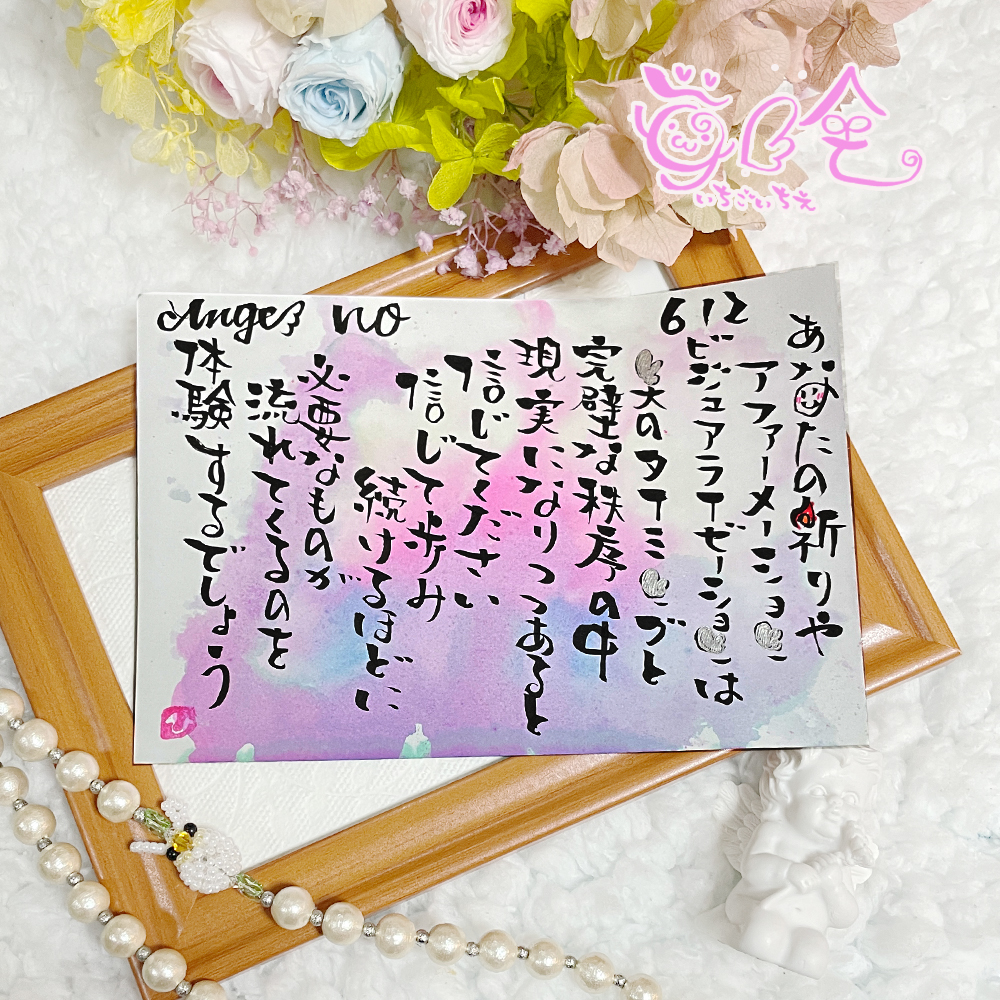 Angel no 612
あなたの祈りや
アファーメーション
ビジュアライゼーションは
天のタイミングと
完璧な秩序の中
現実になりつつあると
信じてください
信じて歩み
続けるほどに
必要なものが
流れてくるのを
体験するでしょう
いちごいちえ